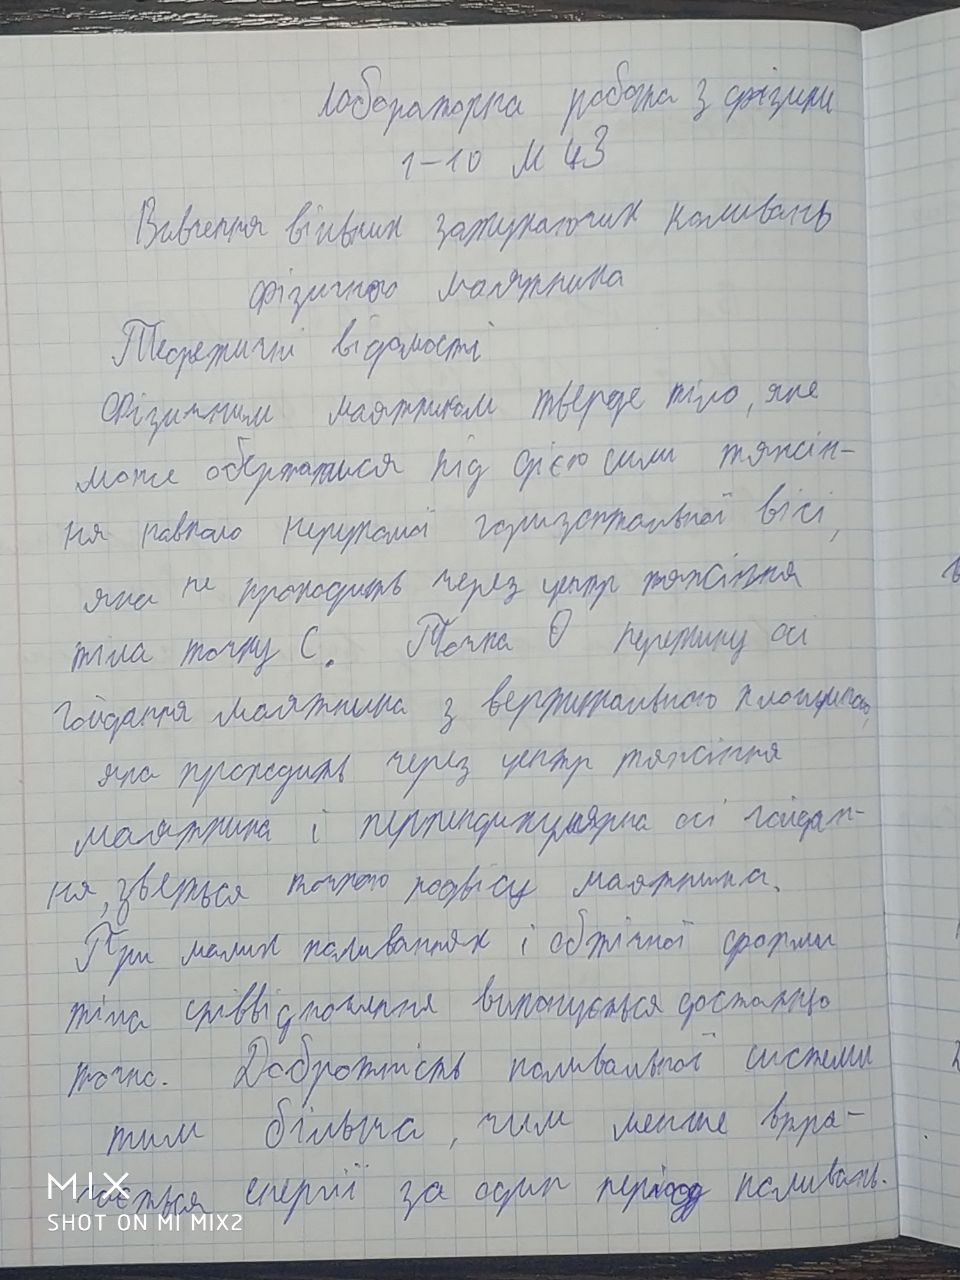 Лабораторна робота з фізики
1-10 М 43
Вивчення вільних затухаючих коливань
фізичного маятника
Теоретичні відомості
Фізичним маятником тверде тіло, яке
може обертатися під дією сили тяжін-
ня навколо нерухомої горизонтальної вісі,
яка не проходить через центр тяжіння
тіла точку С. Точка О перетину осі
гойдання маятника з вертикальною площиною,
яка проходить через центр тяжіння
маятника і перпендикулярна осі гойдан-
ня, зветься точкою подвісу маятника.
При малих коливаннях і обтічної форми
тіла співвідношення виконується достатньо
точно. Добротність коливальної системи
тим більша, чим менше втра-
чається енергії за один період коливань.
MIX
SHOT ON MI MIX2